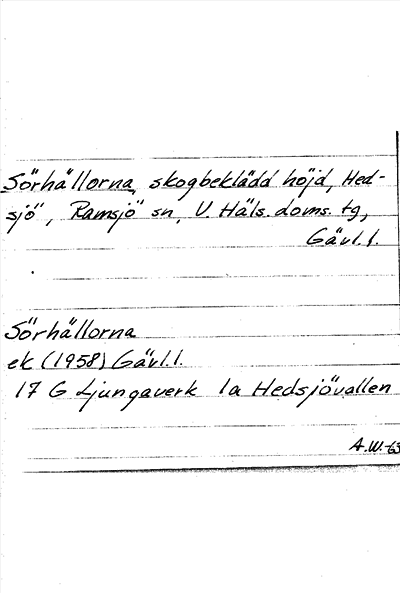 Sörhällorna, skogbeklädd höjd, Hed-
sjö, Ramsjö sn, V. Häls. doms. tg,
Gävl. l.
Sörhällorna
ek (1958) Gävl. l.
17 G Ljungaverk 1a Hedsjövallen
A.W.-63